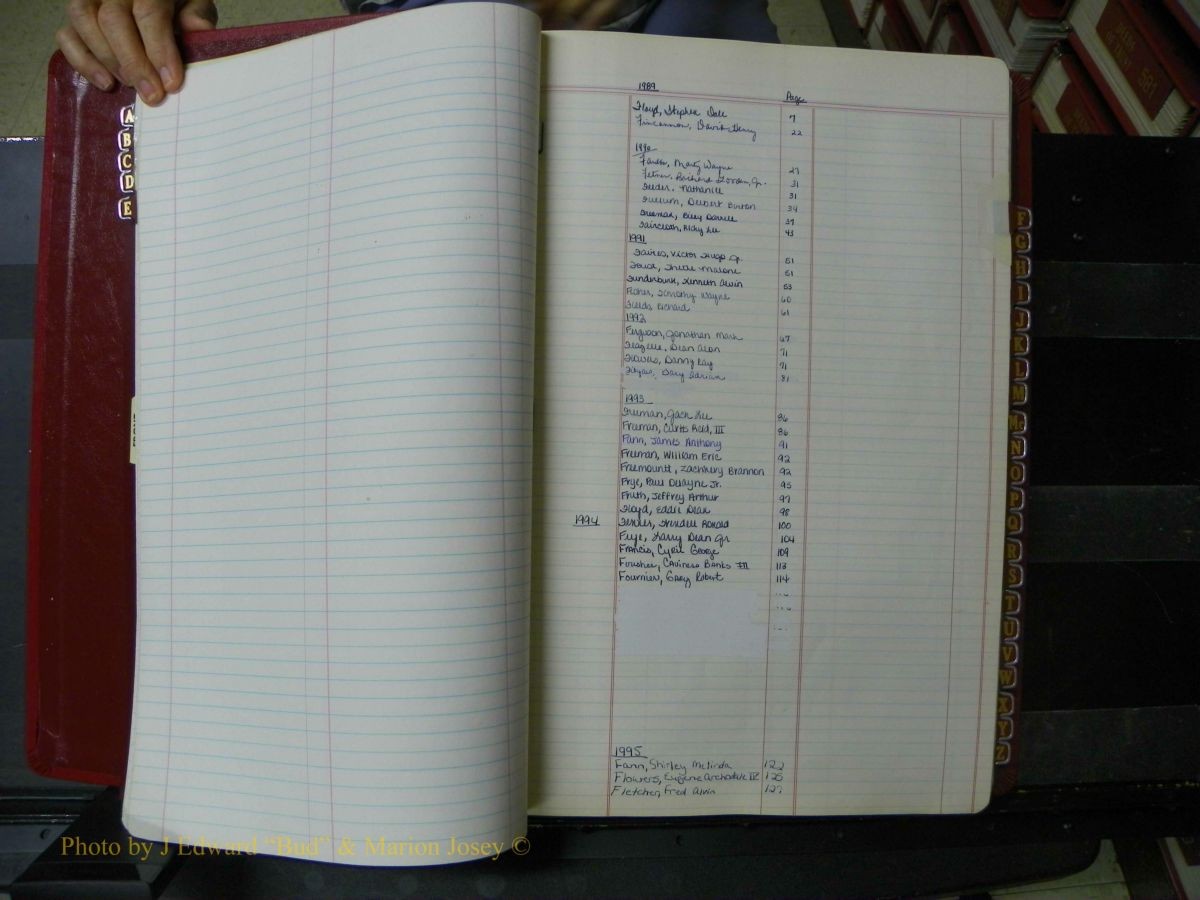 1989
Page
Floyd, Stephen Dale 7
Fincannon, David Henry 22
1990
Marty Wayne 27
Fetner, Richard Gordon, Jr. 31
Feeder, Nathaniel 31
Delbert Burton 34
Freeman, Billy Darrell 37
Faircloth, Ricky Lee 43
1991
Faires, Victor Hugo Jr. 51
Malone 51
Funderburk, Kenneth Alvin 53
Fisher, Timothy Wayne 60
Fields, Richard 61
1992
Ferguson, Jonathan Mark 67
Dean Alan 71
Flowers, Danny Ray 71
Gary Adrian 81
1993
Freeman, Jack Lee 86
Freeman, Curtis Reid, III 86
Fann, James Anthony 91
Freeman, William Eric 92
Freemountt, Zachhery Brannon 92
Frye, Paul Dwayne Jr. 95
Fruth, Jeffrey Arthur 97
Floyd, Eddie Dean 98
1994
Ronald 100
Frye, Larry Dean Jr 104
Francis, Cyril George 109
Foushee, Caviness Banks III 113
Fournier, Gary Robert 114
1995
Fann, Shirley Melinda 122
Flowers, Eugene Archdale IV 125
Fletcher, Fred Alvin 127
A
B
C
D
E
F
G
H
I
J
K
L
M
Mc
N
O
P
Q
R
S
T
U
V
W
X
Y
Z
581
Photo by J Edward “Bud” & Marion Josey ©